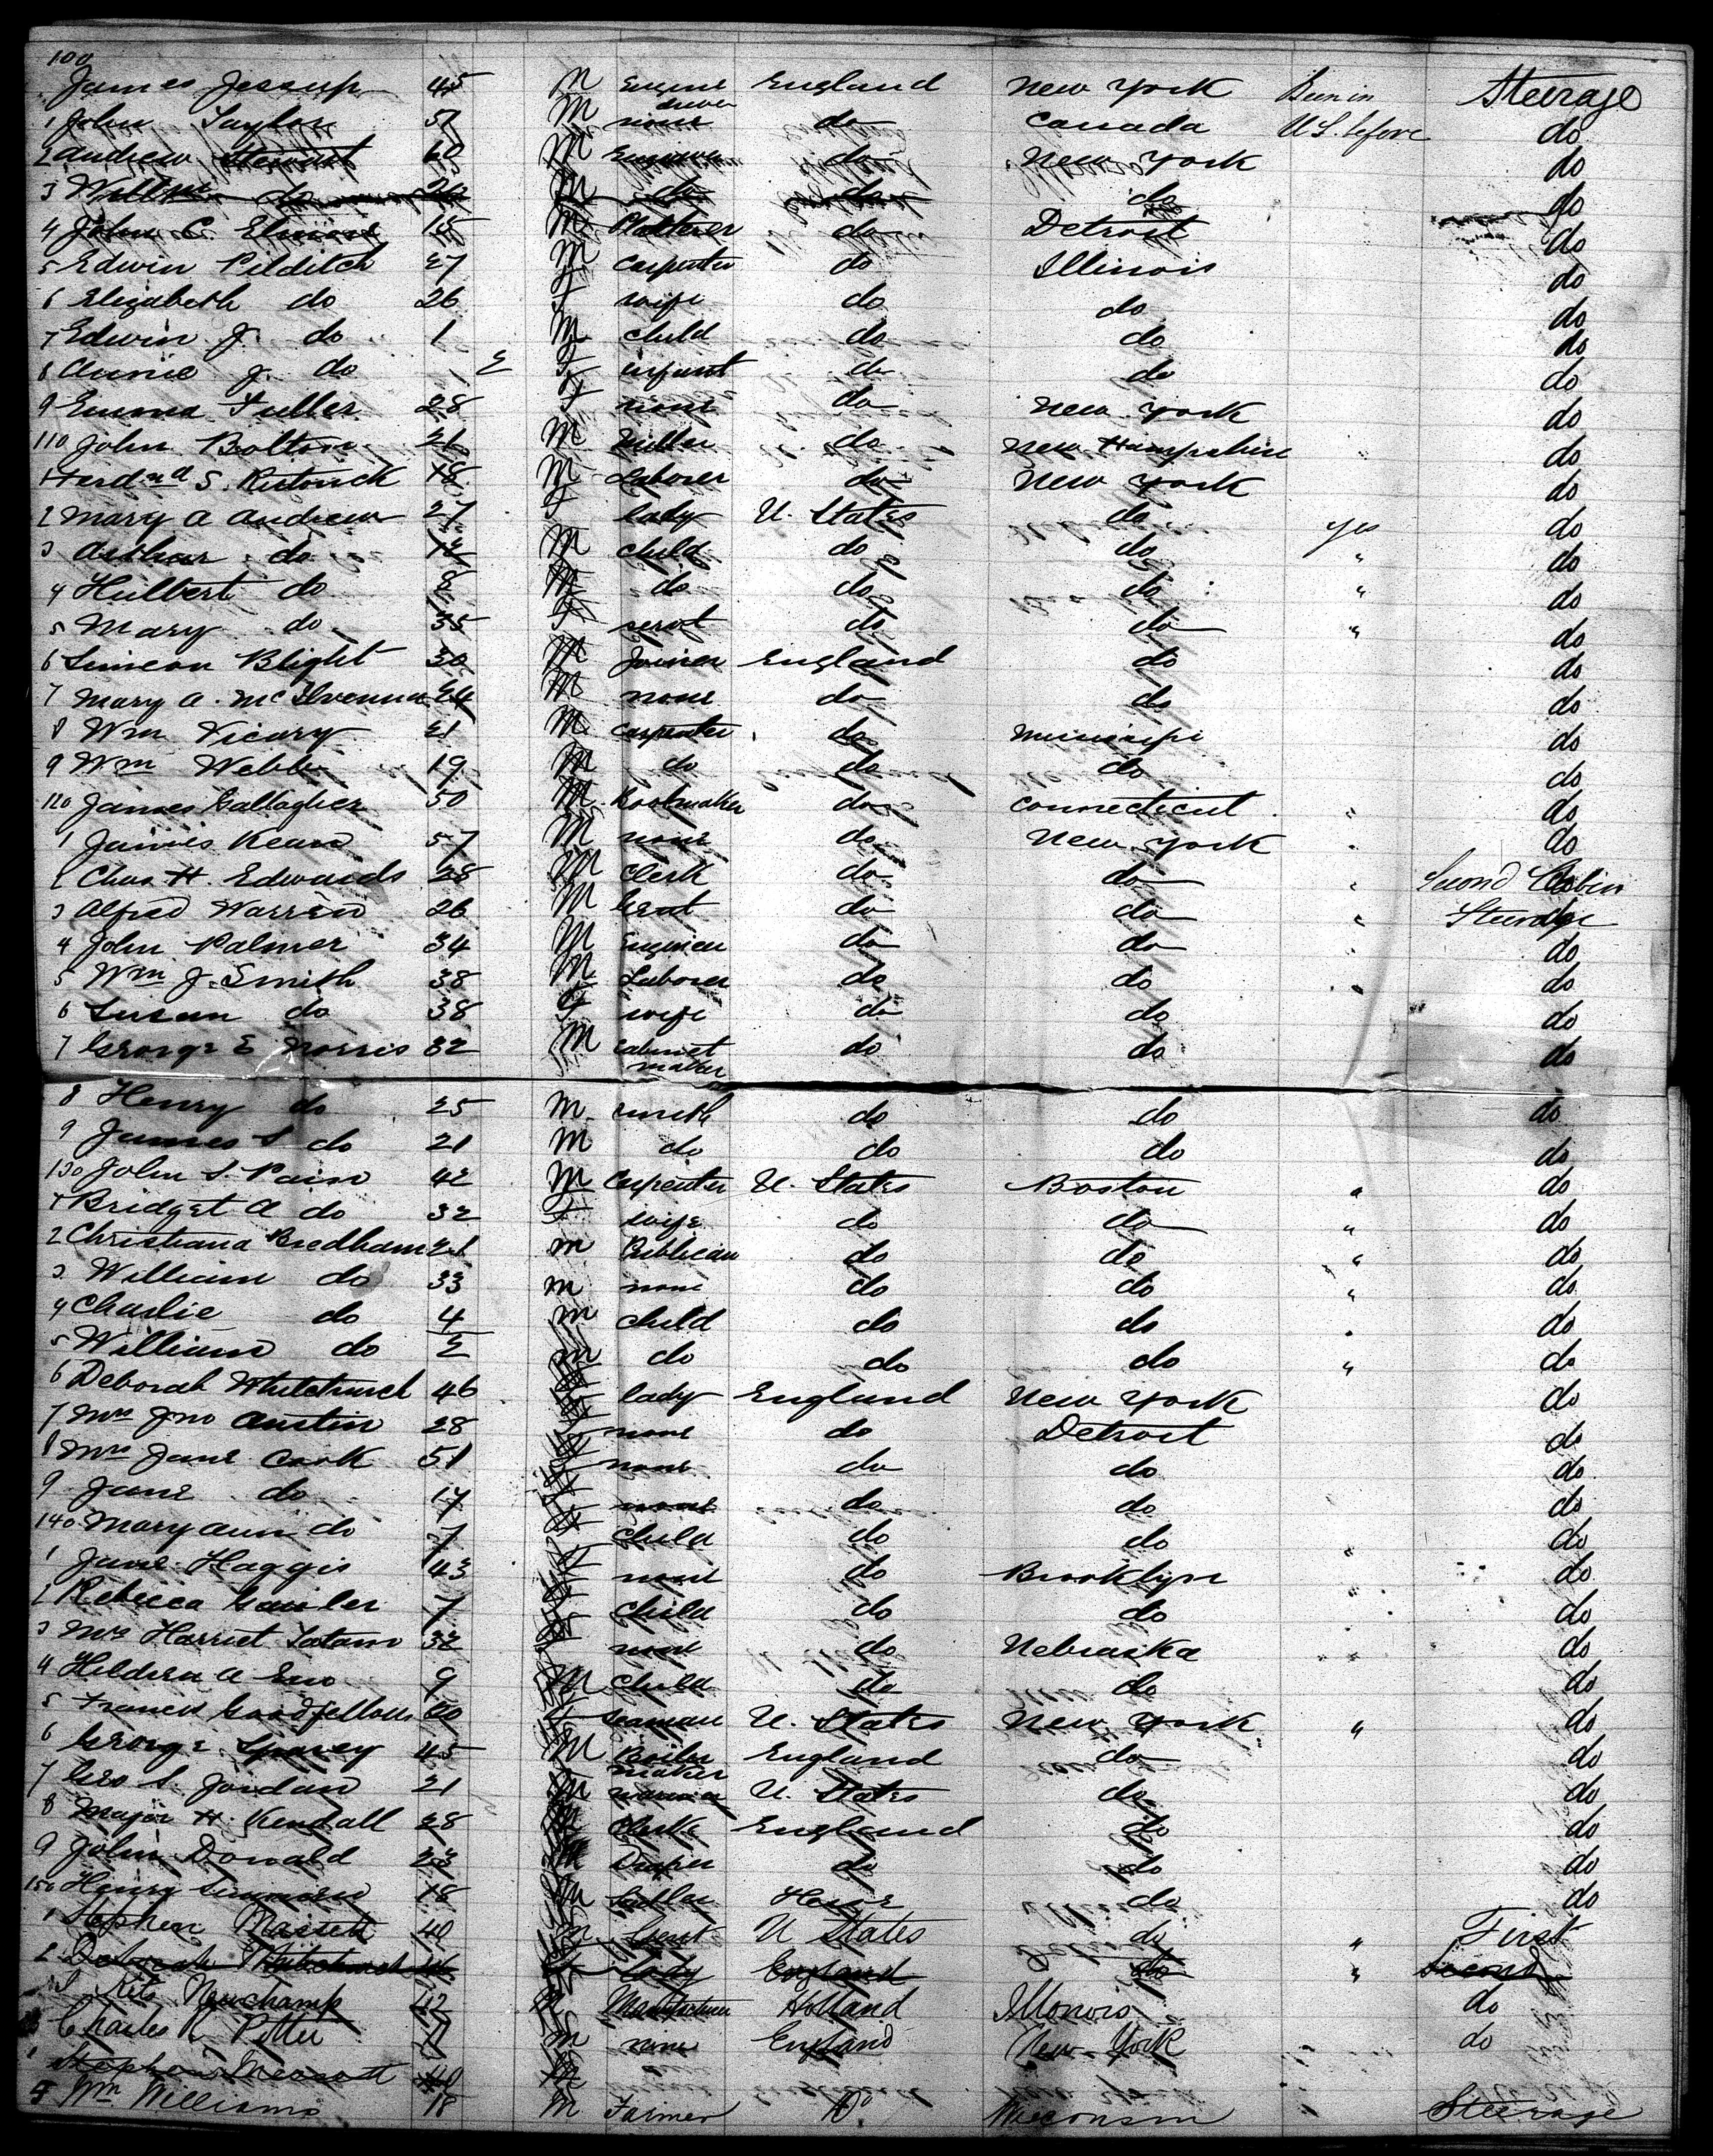 100 James Jessup 45 M Engine driver England New York Been in Steerage
1 John Taylor 57 M none do Canada U.S. before do
2 Andrew Stewart 60 M do New York do
3 Willm do 20 M do do do do
4 John C. 18 M Plasterer do Detroit do
5 Edwin Pilditch 27 M Carpenter do Illinois do
6 Elizabeth do 26 F wife do do do
7 Edwin J. do 1 M child do do do
8 Annie J. do F infant do do do
9 Emma Fuller 28 F none do New York do
110 John Bolton 21 M Miller do New Hampshire do
1 Ferdnd S. 18 M Laborer do New York do
2 Mary A Andrew 27 F lady U. States do yes do
3 Arthur do M child do do " do
4 Hulbert do 8 M do do do " do
5 Mary do 35 F servt do do " do
6 Simeon Blight 30 M Joiner England do do
7 Mary A. McIlvenna M none do do do
8 Wm Vicary 21 M Carpenter do do
9 Wm Webb 19 M do do do do
120 James Gallagher 50 M Bootmaker do Connecticut " do
1 James Kean 57 M none do New York " do
2 Chas H. Edwards 28 M Clerk do do " Second Cabin
3 Alfred Warren 26 M Gent do do " Steerage
4 John Palmer 34 M Engineer do do " do
5 Wm J. Smith 38 M Laborer do do " do
6 Susan do 38 F wife do do do
7 George E Norris 32 M Cabinet maker do do do
8 Henry do 25 M smith do do do
9 James S do 21 M do do do do
130 John S. 42 M Carpenter U. States Boston " do
1 Bridget A do 32 F wife do do " do
2 Christiana Bredham 21 M Publican do do " do
3 William do 33 M none do do " do
4 Charlie do 4 M child do do " do
5 William do 2 M do do do " do
6 Deborah Whitchurch 46 F lady England New York do
7 Mrs Jno Austin 28 F none do Detroit do
8 Mrs Jane Cook 51 F none do do do
9 Jane do 17 F none do do do
140 Mary Ann do 7 F child do do " do
1 Jane Haggis 43 F none do Brooklyn " do
2 Rebecca 7 F child do do " do
3 Mrs Harriet Tatam 32 F none do Nebraska " do
4 9 M child do do do
5 Francis Goodfellow 60 seaman U. States New York " do
6 George Sparey 45 M Boiler maker England do do
7 Geo S. Jordan 21 M U. States do do
8 Major H. Kendall 28 M Clerk England do do
9 John Donald 23 M Draper do do do
150 Henry 18 M do do
1 Stephen Massett 40 M Gent U States do " First
2 Deborah Whitchurch F lady England do " Second
3 42 M Manufacturer Holland Illonois do
Charles R Pitter M none England New York do
Stephen 40 M
5 Wm Williams 18 M Farmer Do Wisconsin Steerage